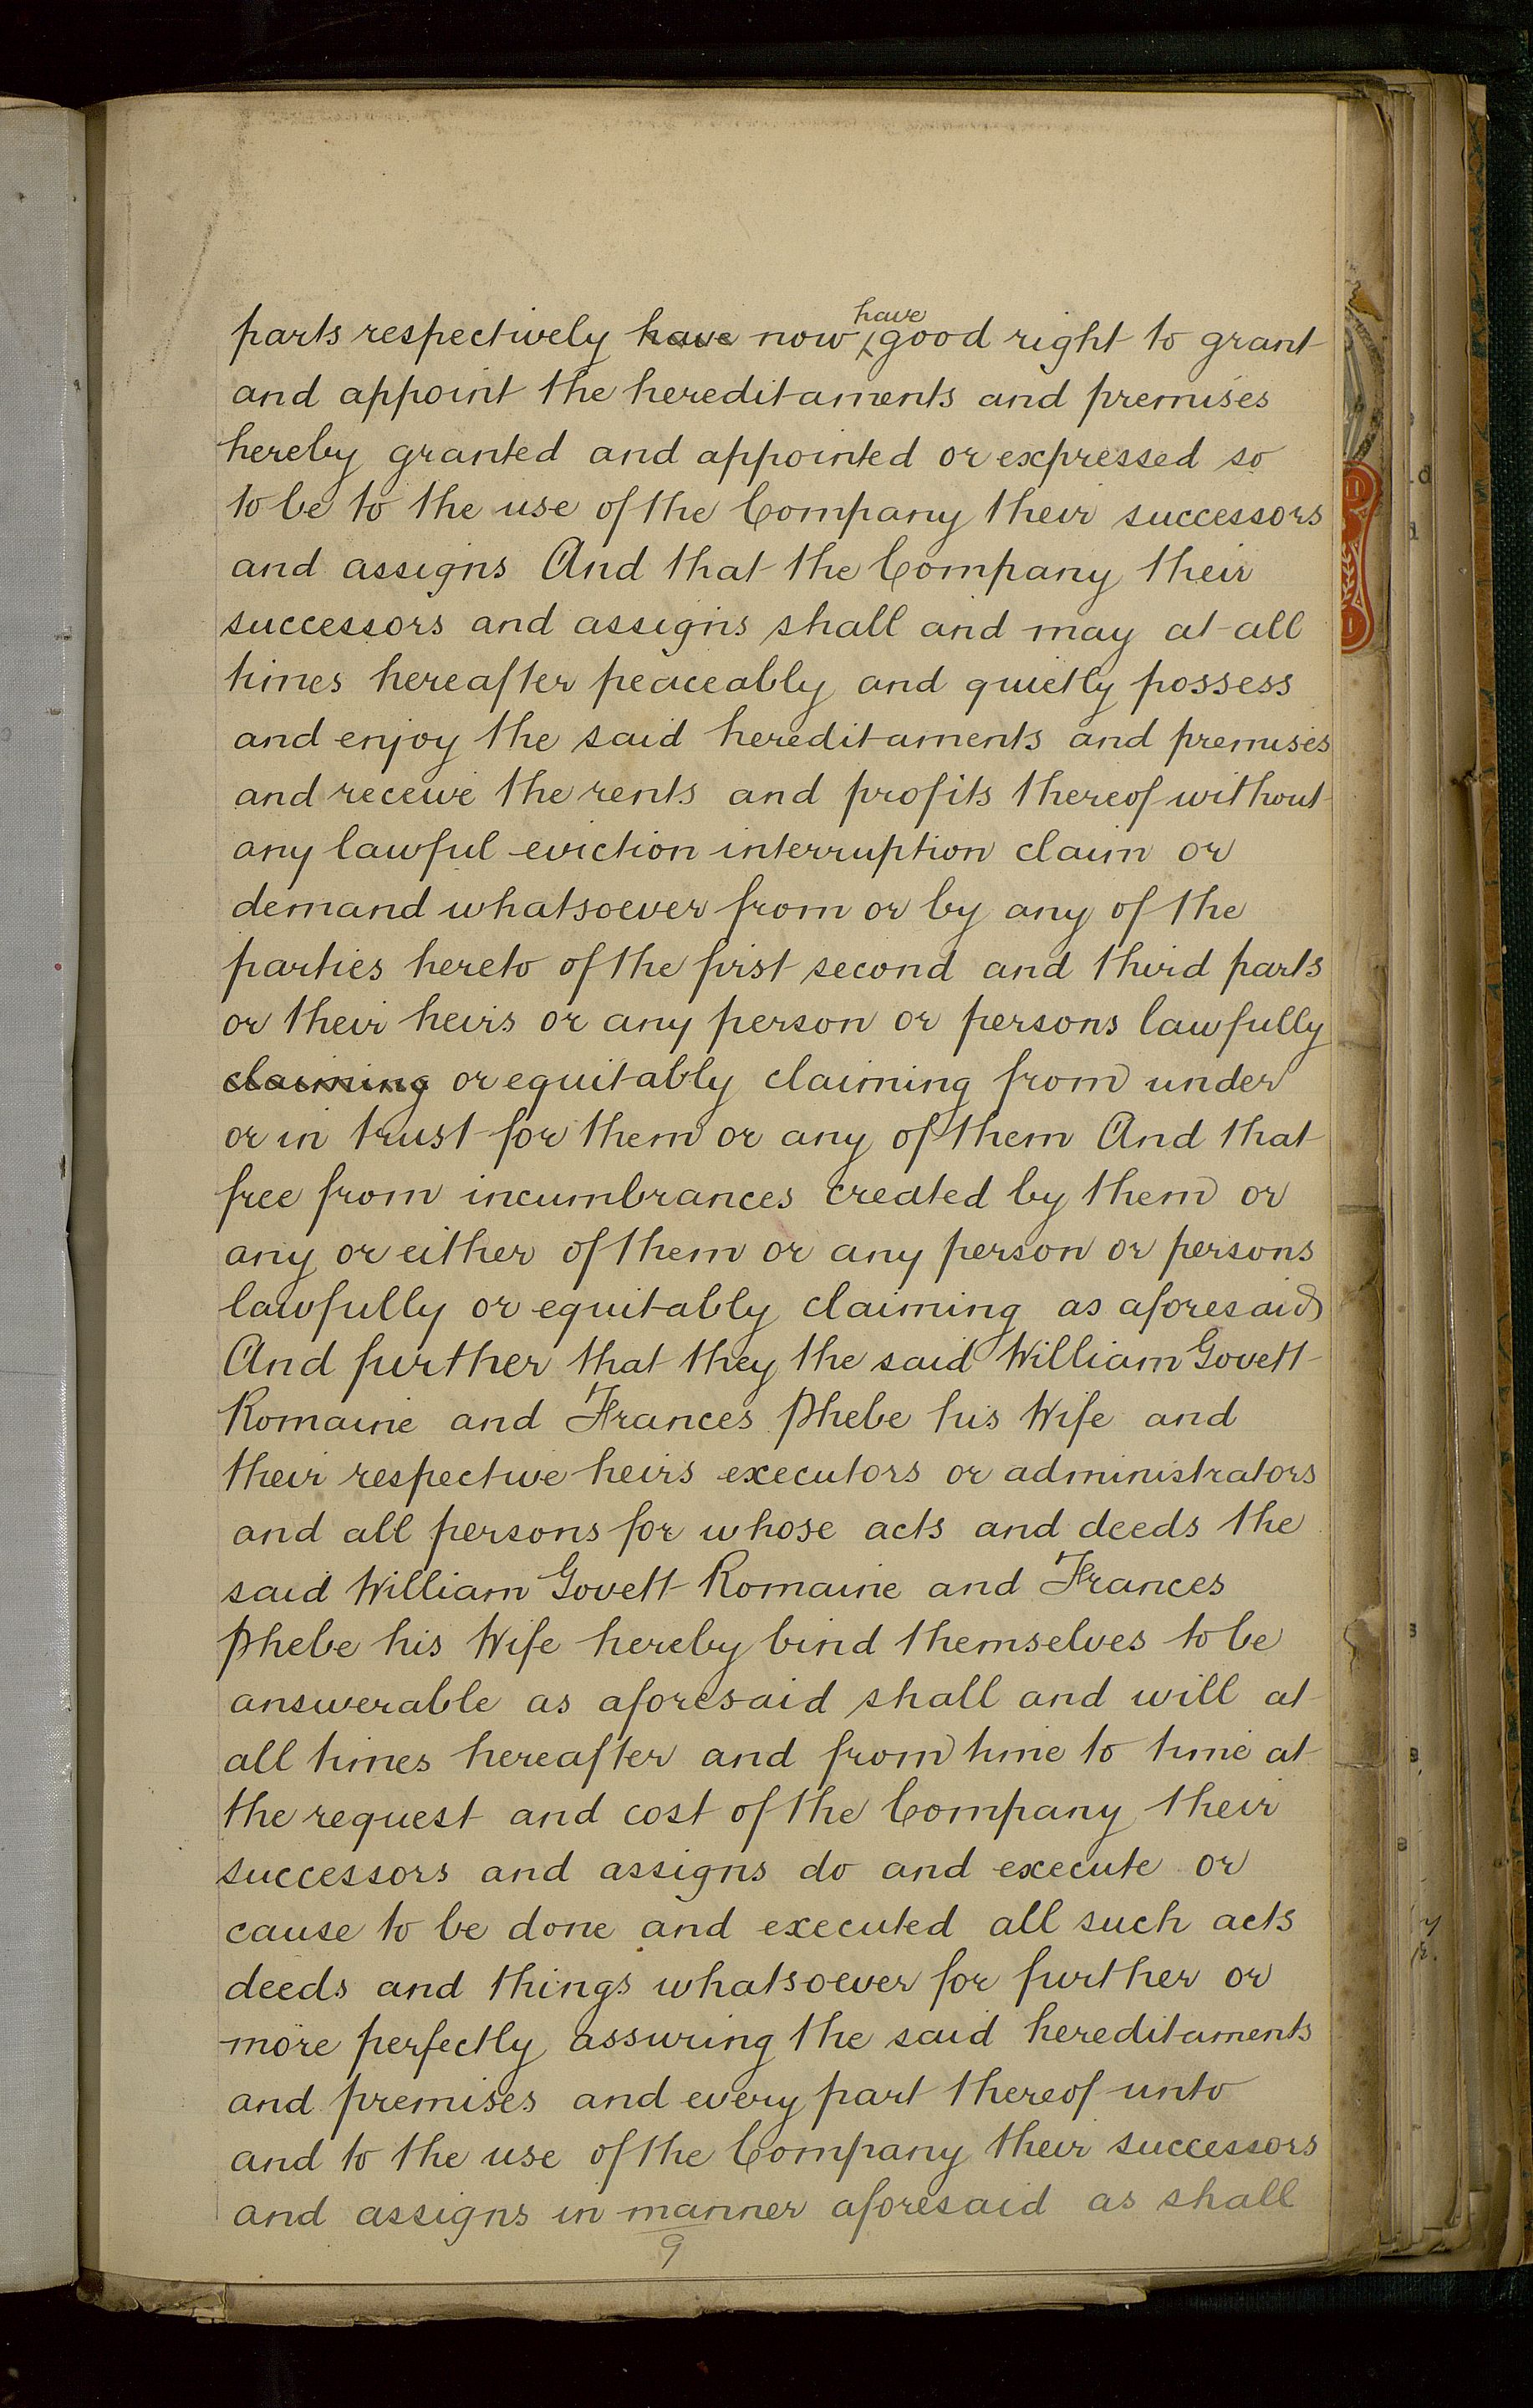 parts respectively have now have good right to grant
and appoint the hereditaments and premises
hereby granted and appointed or expressed so
to be to the use of the Company their successors
and assigns And that the Company their
successors and assigns shall and may at all
times hereafter peaceably and quietly possess
and enjoy the said hereditaments and premises
and receive the rents and profits thereof without
any lawful eviction interruption claim or
demand whatsoever from or by any of the
parties hereto of the first second and third parts
or their heirs or any person or persons lawfully
claiming or equitably claiming from under
or in trust for them or any of them And that
free from incumbrances created by them or
any or either of them or any person or persons
lawfully or equitably claiming as aforesaid
And further that they the said William Govett
Romaine and Frances Phebe his Wife and
their respective heirs executors or administrators
and all persons for whose acts and deeds the
said William Govett Romaine and Frances
Phebe his Wife hereby bind themselves to be
answerable as aforesaid shall and will at
all times hereafter and from time to time at
the request and cost of the Company their
successors and assigns do and execute or
cause to be done and executed all such acts
deeds and things whatsoever for further or
more perfectly assuring the said hereditaments
and premises and every part thereof unto
and to the use of the Company their successors
and assigns in manner aforesaid as shall
9